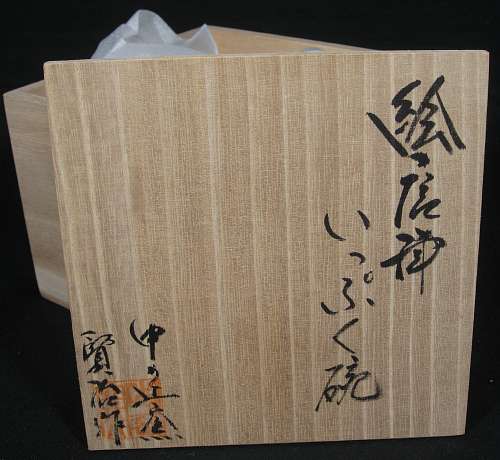 絵唐津
いっぷく碗
中の窯
賢治作